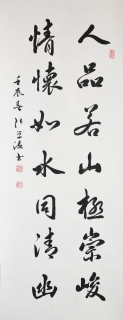 人品若山極崇峻
情懷如水同清幽
壬辰 書